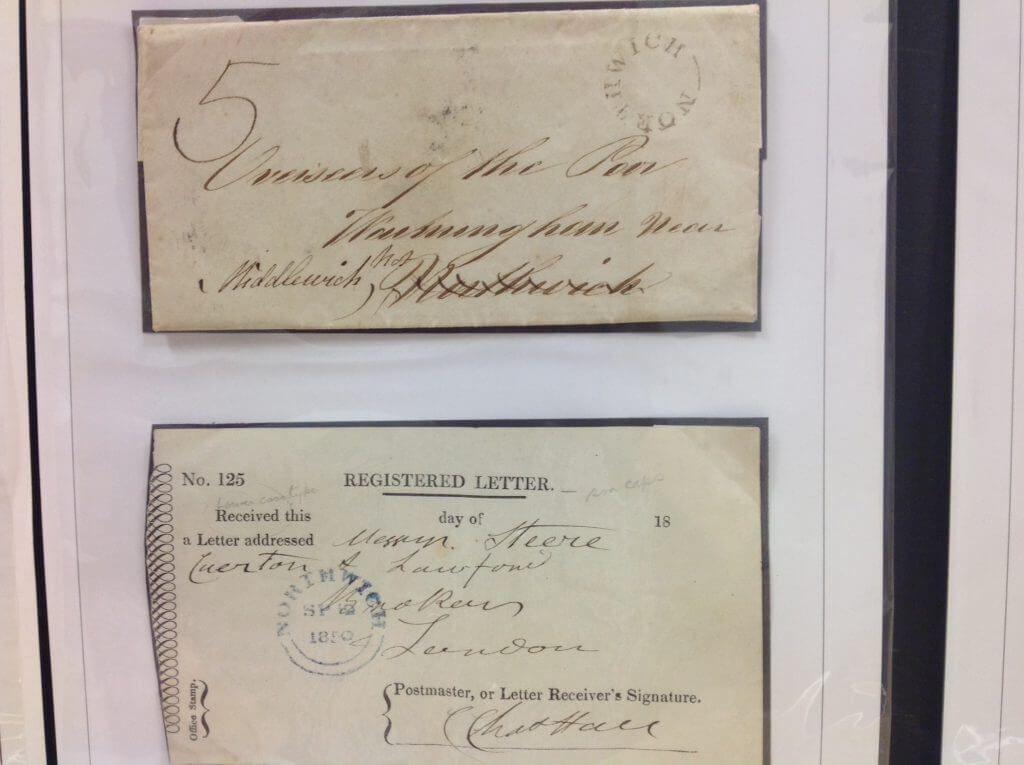 NORTHWICH
5
Overseers of the Poor
Warmingham near
Middlewich, not Northwich
No. 125 REGISTERED LETTER.
Received this day of 18
a Letter addressed Messrs. Steere
& Lawford
NORTHWICH
SP
1850
Brokers
London
Office Stamp.
Postmaster, or Letter Receiver's Signature.
Chas Hall